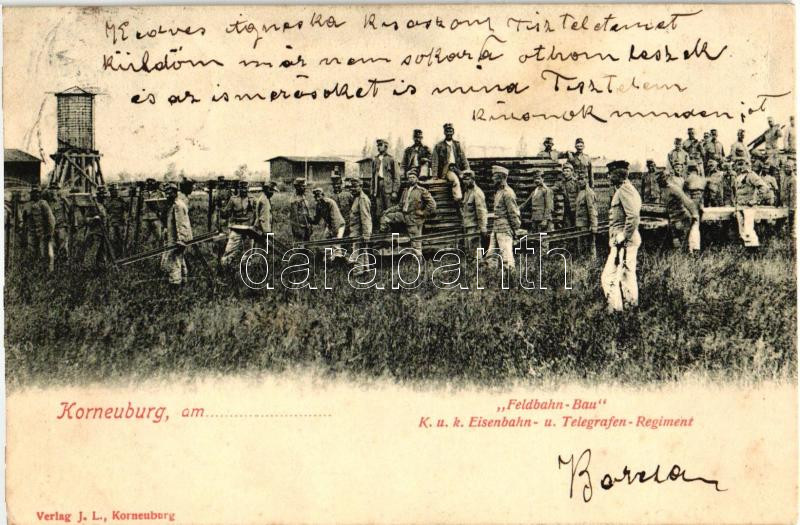 Kedves Agneska kisaszony Tiszteletemet
küldöm már nem sokara othom leszek
és az ismerősöket is mind Tisztelem
minden jot
darabanth.com
Korneuburg, am
„Feldbahn-Bau"
K. u. k. Eisenbahn- u. Telegrafen-Regiment
Verlag J. L., Korneuburg